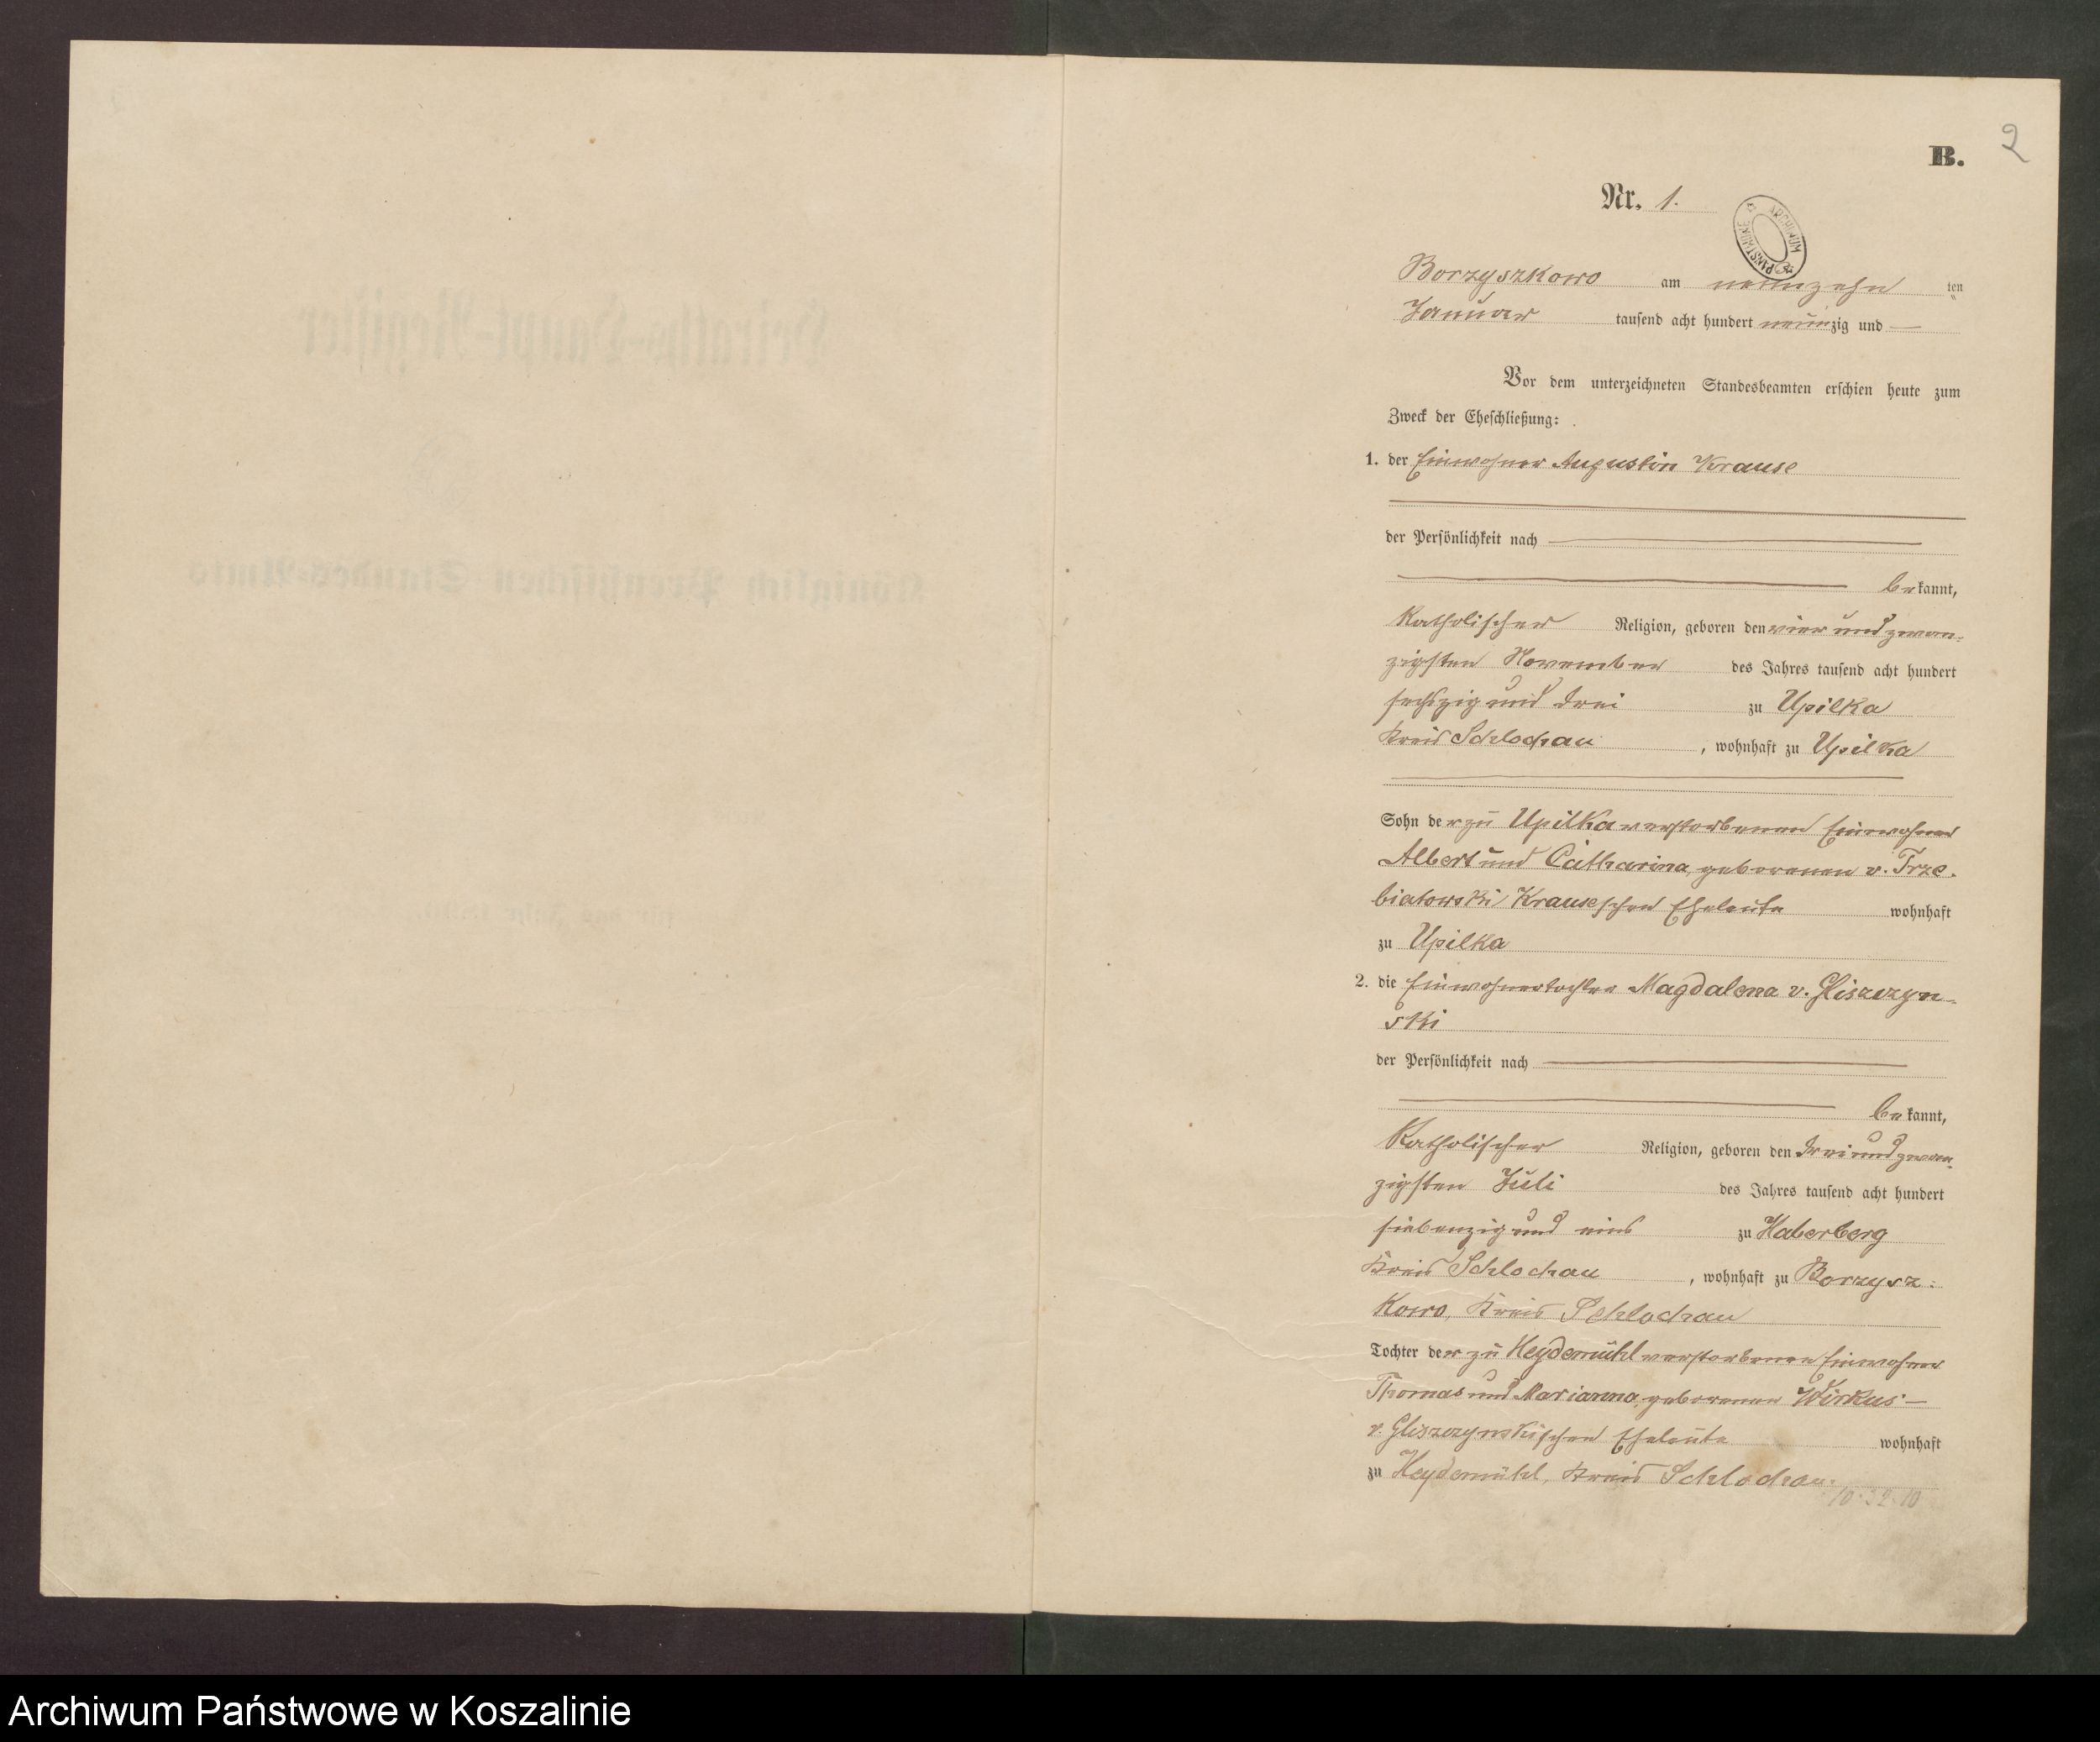 B.
2
Nr. 1.
ARCHIWUM PAŃSTWOWE
Borzyszkowo am neunzehn ten
Januar tausend acht hundert neunzig und —
Vor dem unterzeichneten Standesbeamten erschien heute zum
Zweck der Eheschließung:
1. der Einwohner Augustin Krause
der Persönlichkeit nach
bekannt,
Katholischer Religion, geboren den vier und zwan-
zigsten November des Jahres tausend acht hundert
sechszig und drei zu Upilka
Kreis Schlochau, wohnhaft zu Upilka
Sohn der zu Upilka verstorbenen Einwohner
Albert und Catharina, geborenen v. Trze-
biatowski Krauseschen Eheleute wohnhaft
zu Upilka
2. die Einwohnertochter Magdalena v. Gliszczyn-
ski
der Persönlichkeit nach
bekannt,
Katholischer Religion, geboren den drei und zwan-
zigsten Juli des Jahres tausend acht hundert
siebenzig und eins zu Haberberg
Kreis Schlochau, wohnhaft zu Borzysz-
kowo, Kreis Schlochau
Tochter der zu Heydemühl verstorbenen Einwohner
Thomas und Marianna, geborenen Wirkus —
v. Gliszczynskischen Eheleute wohnhaft
zu Heydemühl, Kreis Schlochau.
10.32.10
Heiraths-Haupt-Register
Königlich Preußischen Standes-Amts
für das Jahr 1890.
Archiwum Państwowe w Koszalinie